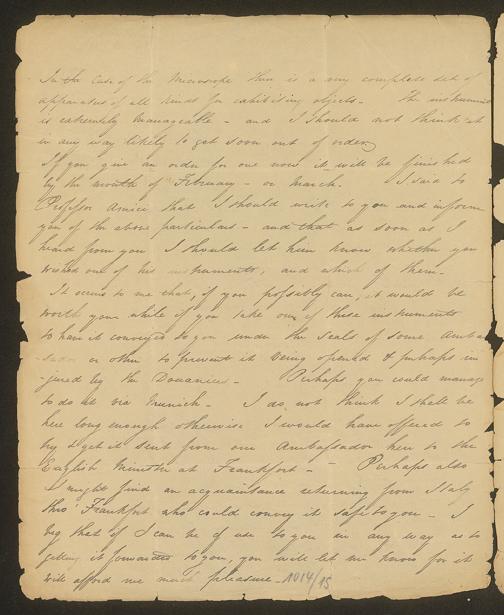 In the Case of the Microscope there is a very complete set of
apparatus of all kinds for exhibiting objects - The instrument
is extremely manageable - and I should not think it
in any way likely to get soon out of order
If you give an order for one now it will be finished
by the month of February - or March. I said to
Professor Amici that I should write to you and inform
you of the above particulars - and that as soon as I
heard from you I should let him know whether you
wished one of his instruments, and which of them -
It occurs to me that, if you possibly can, it would be
worth your while if you take one of these instruments
to have it conveyed to you under the seals of some Amba-
-sador or other to prevent it being opened & perhaps in
-jured by the Douaniers - Perhaps you could manage
to do it via Munich - I do not think I shall be
here long enough otherwise I would have offered to
try & get it sent from our Ambassador here to the
English Minister at Frankfort - Perhaps also
I might find an acquaintance returning from Italy
thro' Frankfort who could convey it safe to you - I
beg that if I can be of use to you in any way as to
getting it forwarded to you, you will let me know for it
will afford me much pleasure - 1014/15